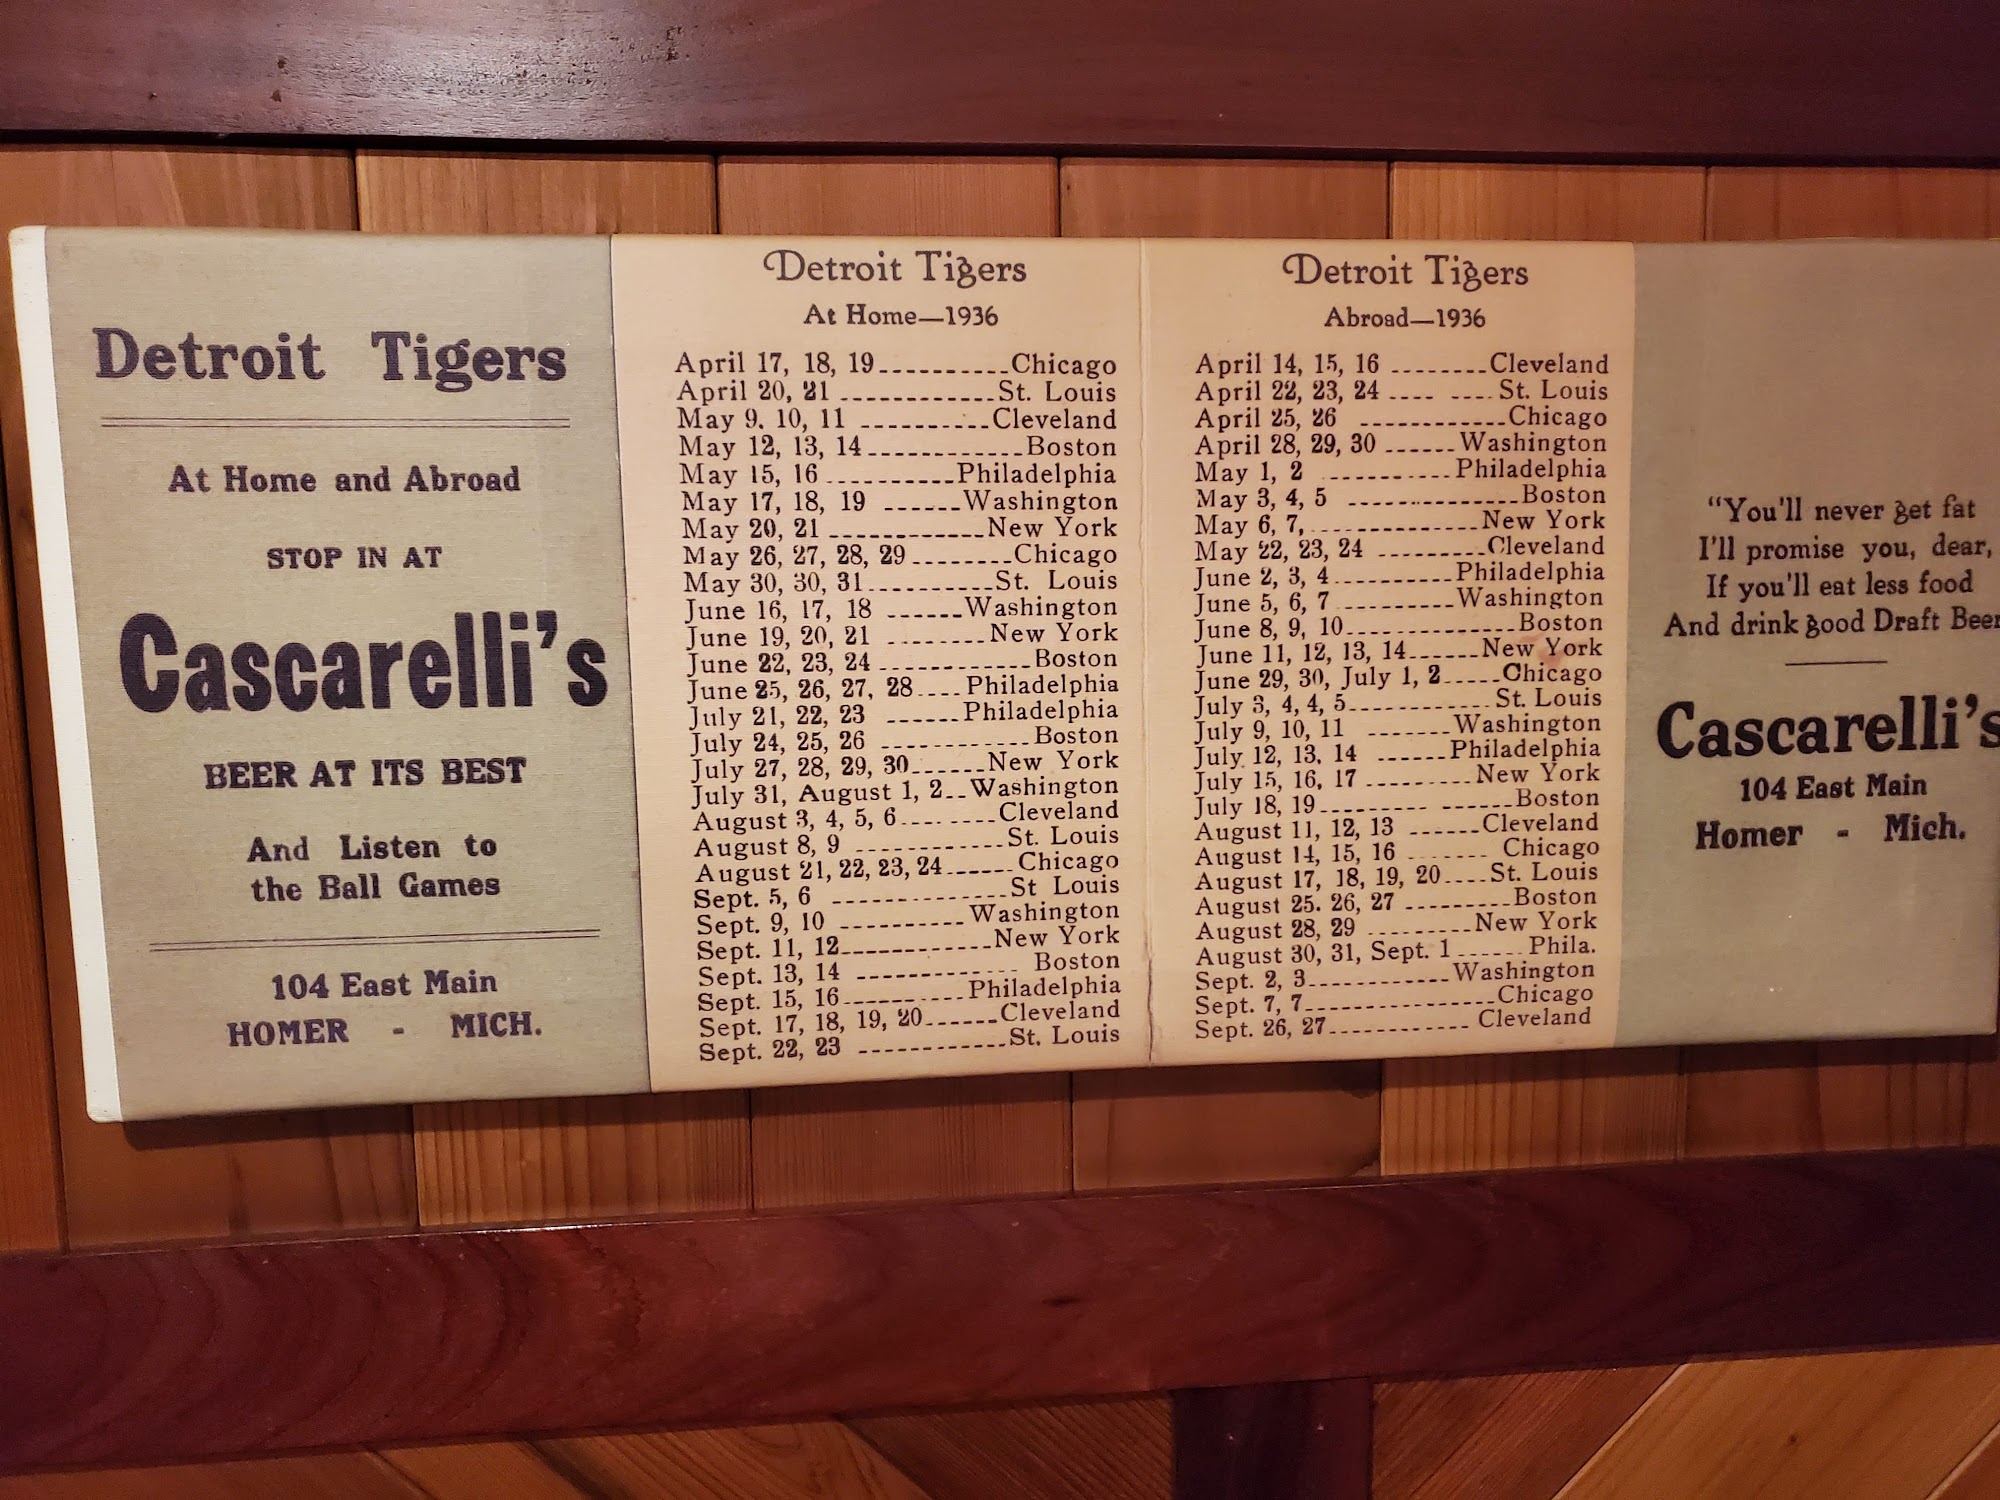 Detroit Tigers
At Home and Abroad
STOP IN AT
Cascarelli's
BEER AT ITS BEST
And Listen to
the Ball Games
104 East Main
HOMER - MICH.
Detroit Tigers
At Home—1936
April 17, 18, 19..........Chicago
April 20, 21 ............St. Louis
May 9. 10, 11 ..........Cleveland
May 12, 13, 14............Boston
May 15, 16..........Philadelphia
May 17, 18, 19 ......Washington
May 20, 21 ............New York
May 26, 27, 28, 29........Chicago
May 30, 30, 31..........St. Louis
June 16, 17, 18 ......Washington
June 19, 20, 21 ........New York
June 22, 23, 24 ............Boston
June 25, 26, 27, 28....Philadelphia
July 21, 22, 23 ......Philadelphia
July 24, 25, 26 ............Boston
July 27, 28, 29, 30......New York
July 31, August 1, 2..Washington
August 3, 4, 5, 6.... ....Cleveland
August 8, 9 ............St. Louis
August 21, 22, 23, 24......Chicago
Sept. 5, 6 ..............St Louis
Sept. 9, 10 ..........Washington
Sept. 11, 12............New York
Sept. 13, 14 ............ Boston
Sept. 15, 16..........Philadelphia
Sept. 17, 18, 19, 20......Cleveland
Sept. 22, 23 ............St. Louis
Detroit Tigers
Abroad—1936
April 14, 15, 16 ........Cleveland
April 22, 23, 24 .... ....St. Louis
April 25, 26 ............Chicago
April 28, 29, 30 ......Washington
May 1, 2 ..........Philadelphia
May 3, 4, 5 ..............Boston
May 6, 7, ..............New York
May 22, 23, 24 .........Cleveland
June 2, 3, 4..........Philadelphia
June 5, 6, 7 ..........Washington
June 8, 9, 10..............Boston
June 11, 12, 13, 14......New York
June 29, 30, July 1, 2.....Chicago
July 3, 4, 4, 5............St. Louis
July 9, 10, 11 .......Washington
July 12, 13. 14 ......Philadelphia
July 15, 16, 17 .........New York
July 18, 19......... ......Boston
August 11, 12, 13 ......Cleveland
August 14, 15, 16 ....... Chicago
August 17, 18, 19, 20....St. Louis
August 25. 26, 27 .........Boston
August 28, 29 .........New York
August 30, 31, Sept. 1......Phila.
Sept. 2, 3............Washington
Sept. 7, 7................Chicago
Sept. 26, 27............ Cleveland
"You'll never get fat
I'll promise you, dear,
If you'll eat less food
And drink good Draft Beer
Cascarelli's
104 East Main
Homer - Mich.